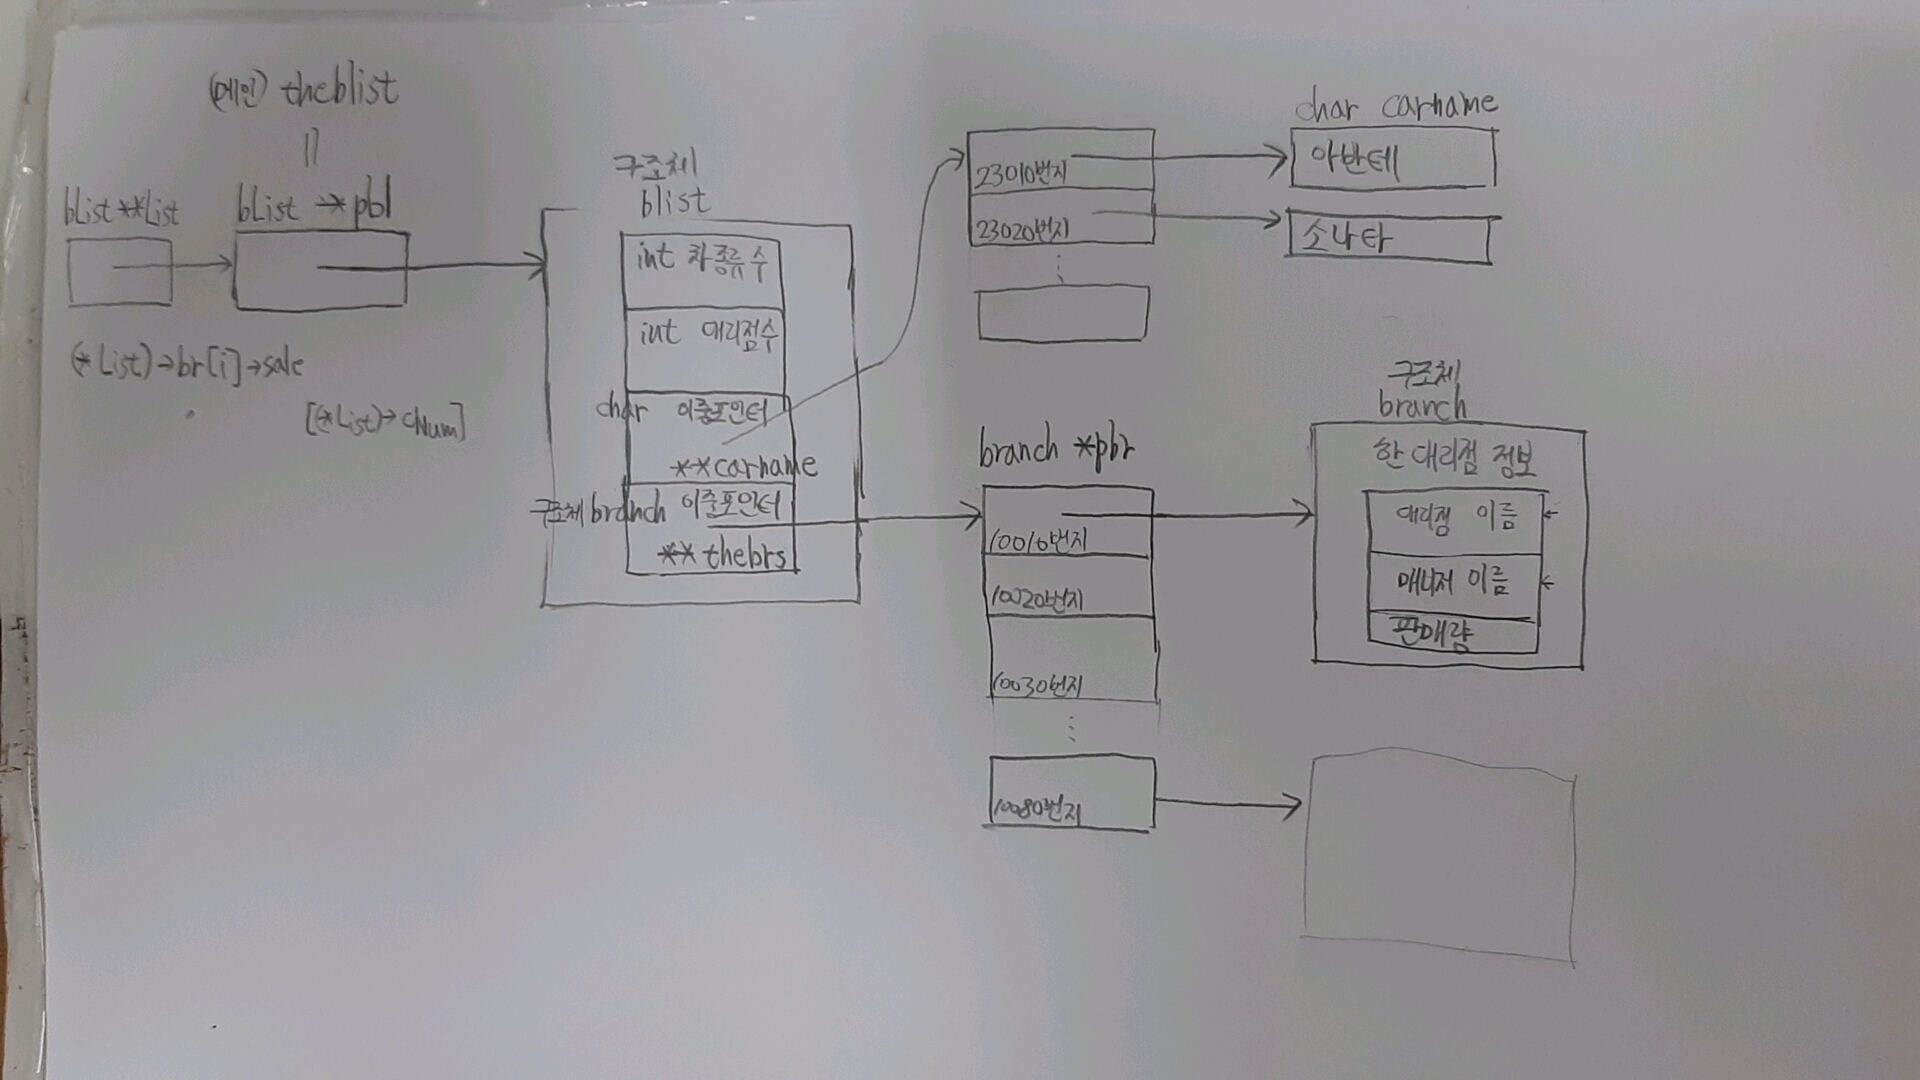 (메인) theblist
||
blist **list
blist *pbl
(*list)→br[i]→sale
[(*list)→cNum]
구조체
blist
int 차종류 수
int 대리점수
char 이중포인터
**carname
구조체 branch 이중포인터
**thebrs
23010번지
23020번지
char carname
아반테
소나타
branch *pbr
10010번지
10020번지
10030번지
10080번지
구조체
branch
한 대리점 정보
대리점 이름
매니저 이름
판매량